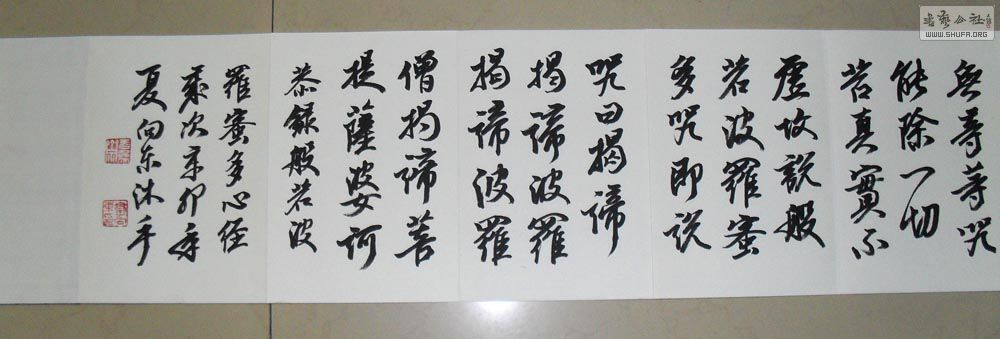 無等等咒
能除一切
苦真實不
虛故說般
若波羅蜜
多咒即說
咒曰揭諦
揭諦波羅
揭諦波羅
僧揭諦菩
提薩婆訶
恭錄般若波
羅蜜多心經
歲次辛卯年
夏向东沐手
書藝公社
WWW.SHUFA.ORG